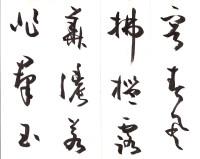 容春風
拂檻露
華濃若
非群玉